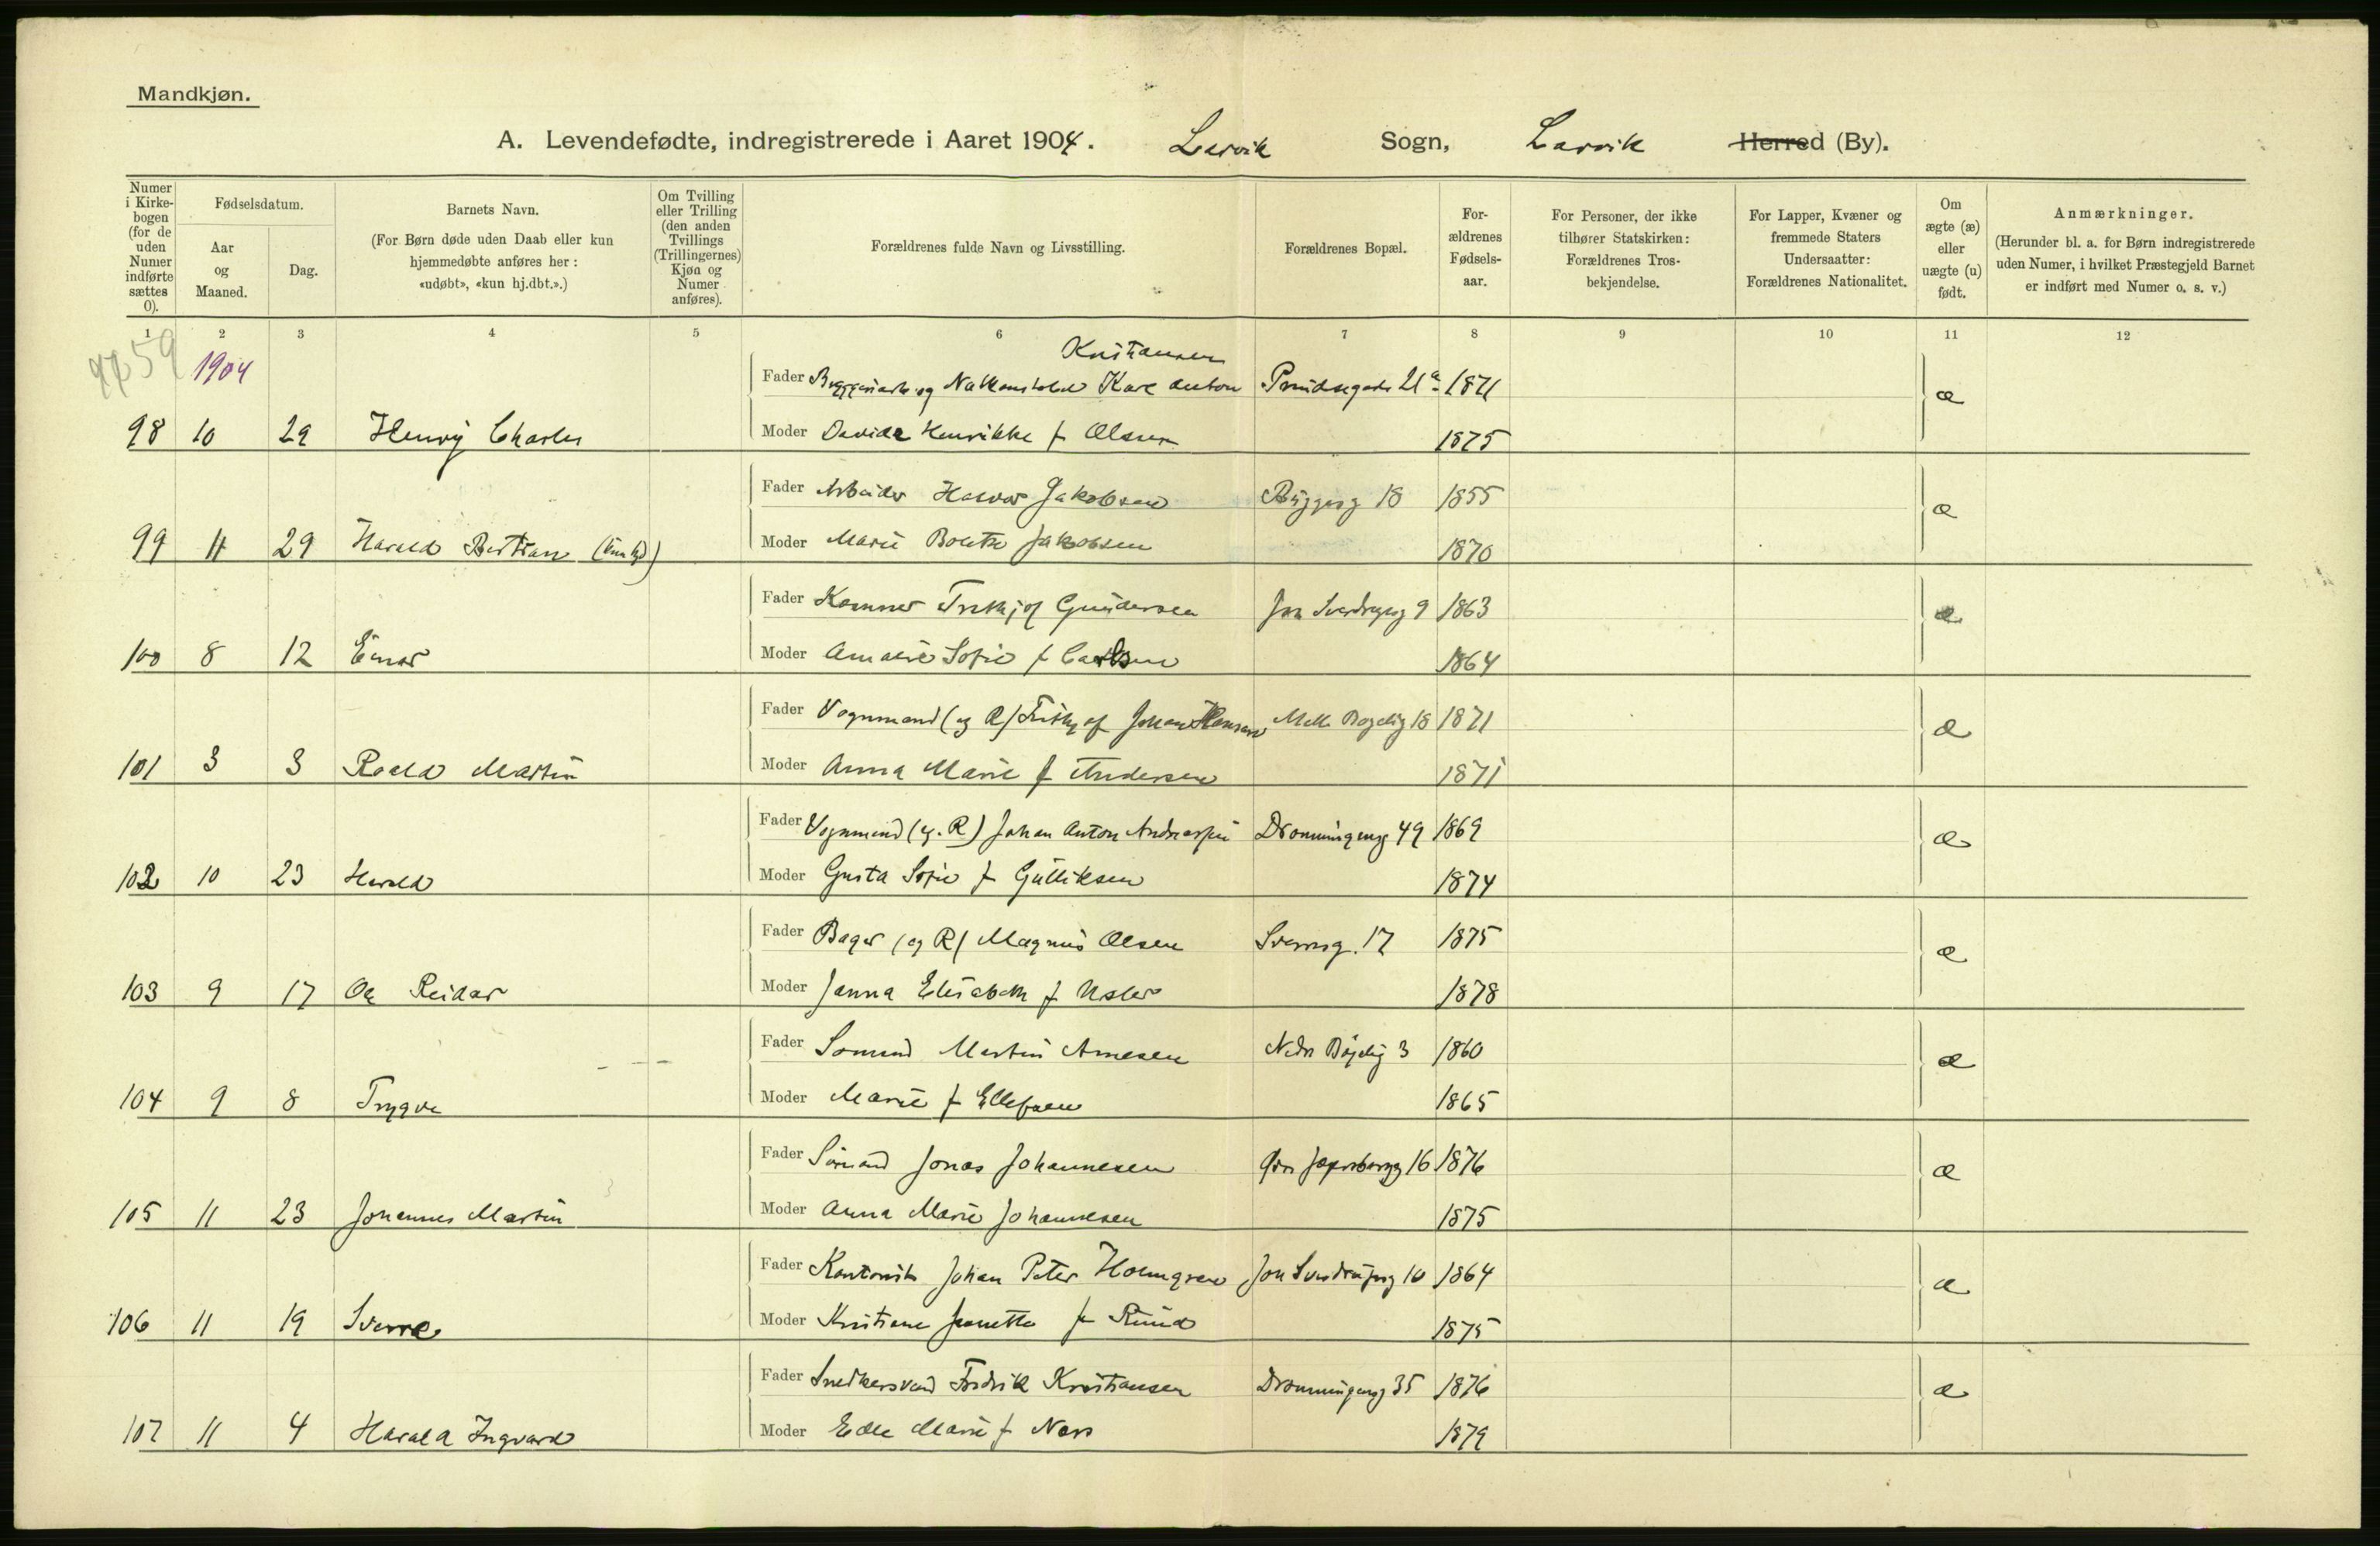 Mandkjøn.
A. Levendefødte, indregistrerede i Aaret 1904. Larvik Sogn, Larvik Herred (By).
Numer i Kirkebogen (for de uden Numer indførte sættes 0).
Fødselsdatum.
Aar og Maaned.
Dag.
Barnets Navn.
(For Børn døde uden Daab eller kun hjemmedøbte anføres her: «udøbt», «kun hj.dbt.».)
Om Tvilling eller Trilling (den anden Tvillings (Trillingernes) Kjøn og Numer anføres).
Forældrenes fulde Navn og Livsstilling.
Forældrenes Bopæl.
Forældrenes Fødselsaar.
For Personer, der ikke tilhører Statskirken: Forældrenes Trosbekjendelse.
For Lapper, Kvæner og fremmede Staters Undersaatter: Forældrenes Nationalitet.
Om ægte (æ) eller uægte (u) født.
Anmærkninger.
(Herunder bl. a. for Børn indregistrerede uden Numer, i hvilket Præstegjeld Barnet er indført med Numer o. s. v.)
1 2 3 4 5 6 7 8 9 10 11 12
59 1904
Kristiansen
Fader og Karl Anton 21a 1871 æ
98 10 29 Henry Charles Moder Davida Henrikke f Olsen 1875
Fader Arbeider Halvor Jakobsen Byggesg 18 1855 æ
99 11 29 Harald Bertran Moder Marie Bolette Jakobsen 1870
Fader Gundersen Jon Sverdrupsg 9 1863 æ
100 8 12 Einar Moder Amalie Sofie f Carlsen 1864
Fader Vognmand (eg R) Johan Hansen 18 1871 æ
101 3 3 Roald Martin Moder Anna Marie f Andersen 1871
Fader Vognmand (eg. R) Johan Anton Andreassen Dronningensg 49 1869 æ
102 10 23 Harald Moder Gusta Sofie f Gulliksen 1874
Fader Bager (eg R) Magnus Olsen Sverresg. 17 1875 æ
103 9 17 Reidar Moder Janna Elisabeth f 1878
Fader Sømand Martin Arnesen Nedre Bøjelig 3 1860 æ
104 9 8 Trygve Moder Marie f Ellefsen 1865
Fader Sømand Jonas Johannesen 16 1876 æ
105 11 23 Johannes Martin Moder Anna Marie Johannesen 1875
Fader Kontorist Johan Peter Holmgren Jon Sverdrupsg 10 1864 æ
106 11 19 Sverre Moder Kristiane Jeanette f Ruud 1875
Fader Snedkersvend Fredrik Kristiansen Dronningensg 35 1876 æ
107 11 4 Harald Ingvard Moder Edle Marie f Næss 1879